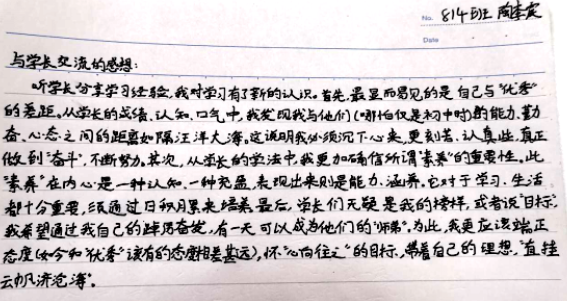 No. 814班 陶李宾
Date
与学长交流的感想：
听学长分享学习经验，我对学习有了新的认识。首先，最显而易见的是自己与“优秀”
的差距。从学长的成绩、认知、口气中，我发现我与他们（哪怕仅是初中时）的能力、勤
奋、心态之间的距离如隔汪洋大海。这说明我必须沉下心来，更刻苦、认真些，真正
做到“奋斗”，不断努力。其次，从学长的学法中，我更加确信所谓“素养”的重要性。此
“素养”在内心是一种认知、一种充盈，表现出来则是能力、涵养。它对于学习、生活
都十分重要，须通过日积月累来培养。最后，学长们无疑是我的榜样，或者说“目标”。
我希望通过我自己的踔厉奋发，有一天可以成为他们的“师弟”。为此，我更应该端正
态度（如今和“优秀”该有的态度相差甚远），怀“心向往之”的目标，带着自己的理想，“直挂
云帆济沧海”。